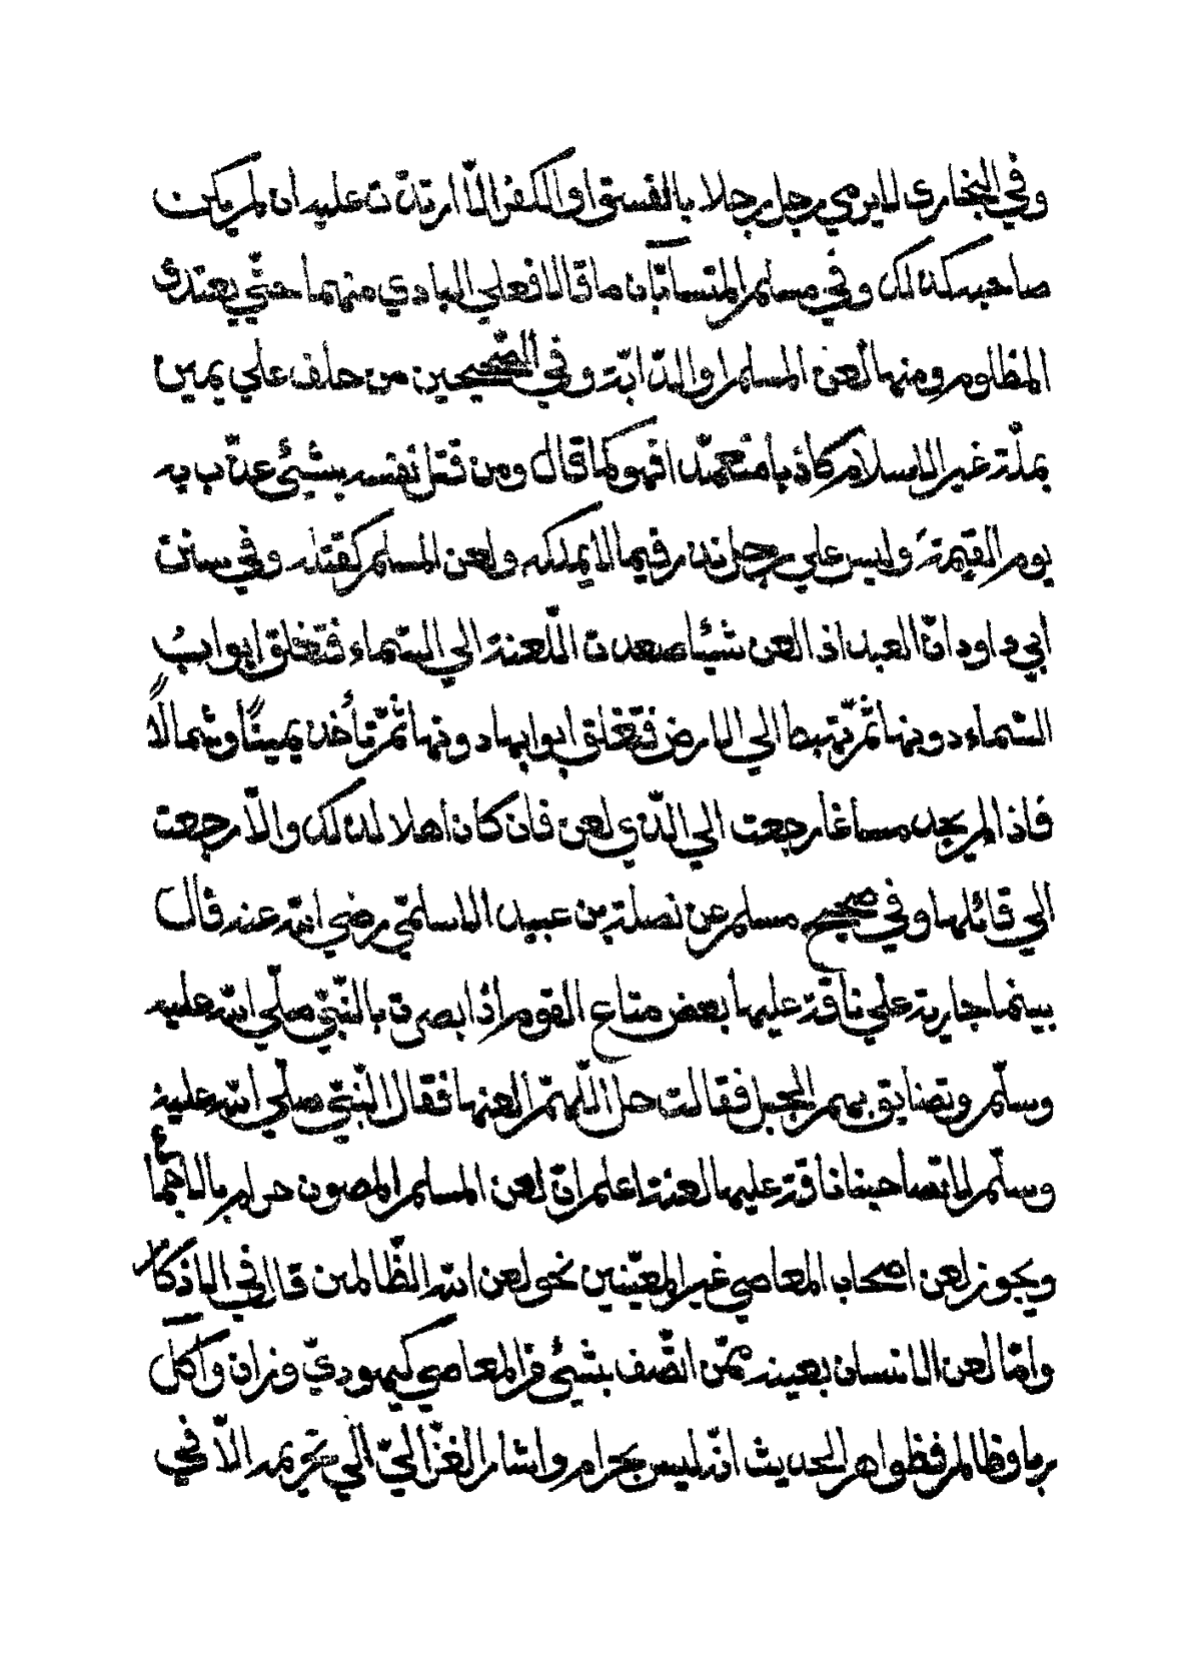 وفي البخاري لا يرمي رجل رجلا بالفسق او الكفر الّا ارتدّت عليه ان لم يكن
صاحبه كذلك وفي مسلم المتسابّان ما قالا فعلي البادي منهما حتّي يعتدي
المظلوم ومنها لعن المسلم او الدّابّة وفي الصّحيحين من حلف علي يمين
بملّة غير الاسلام كاذبا متعمّدا فهو كما قال ومن قتل نفسه بشيئ عذّب به
يوم القيمة وليس علي رجل نذر فيما لا يملكه ولعن المسلم كقتله وفي سنن
أبي داود انّ العبد اذا لعن شيئا صعدت اللّعنة الي السّماء فتغلق ابواب
السّماء دونها ثمّ تهبط الي الارض فتغلق ابوابها دونها ثمّ تأخذ يمينًا وشمالًا
فاذا لم يجد مساغا رجعت الي الّذي لعن فان كان اهلا لذلك والّا رجعت
الي قائلها وفي صحيح مسلم عن نضلة بن عبيد الاسلمّي رضي الله عنه قال
بينما جارية علي ناقة عليها بعض متاع القوم اذ ابصرت بالنّبيّ صلّي الله عليه
وسلّم وتضايق بهم الجبل فقالت حل اللّهمّ العنها فقال النّبيّ صلّي الله عليه
وسلّم لا تصاحبنا ناقة عليها لعنة اعلم انّ لعن المسلم المصون حرام بالاجماع
ويجوز لعن اصحاب المعاصي غير المعيّنين نحو لعن الله الظّالمين قال في الاذكار
وامّا لعن الانسان بعينه ممّن اتّصف بشيئ من المعاصي كيهوديّ وزان وآكل
ربا وظالم فظواهر الحديث انّه ليس بحرام واشار الغزّاليّ الي تحريمه الّا في